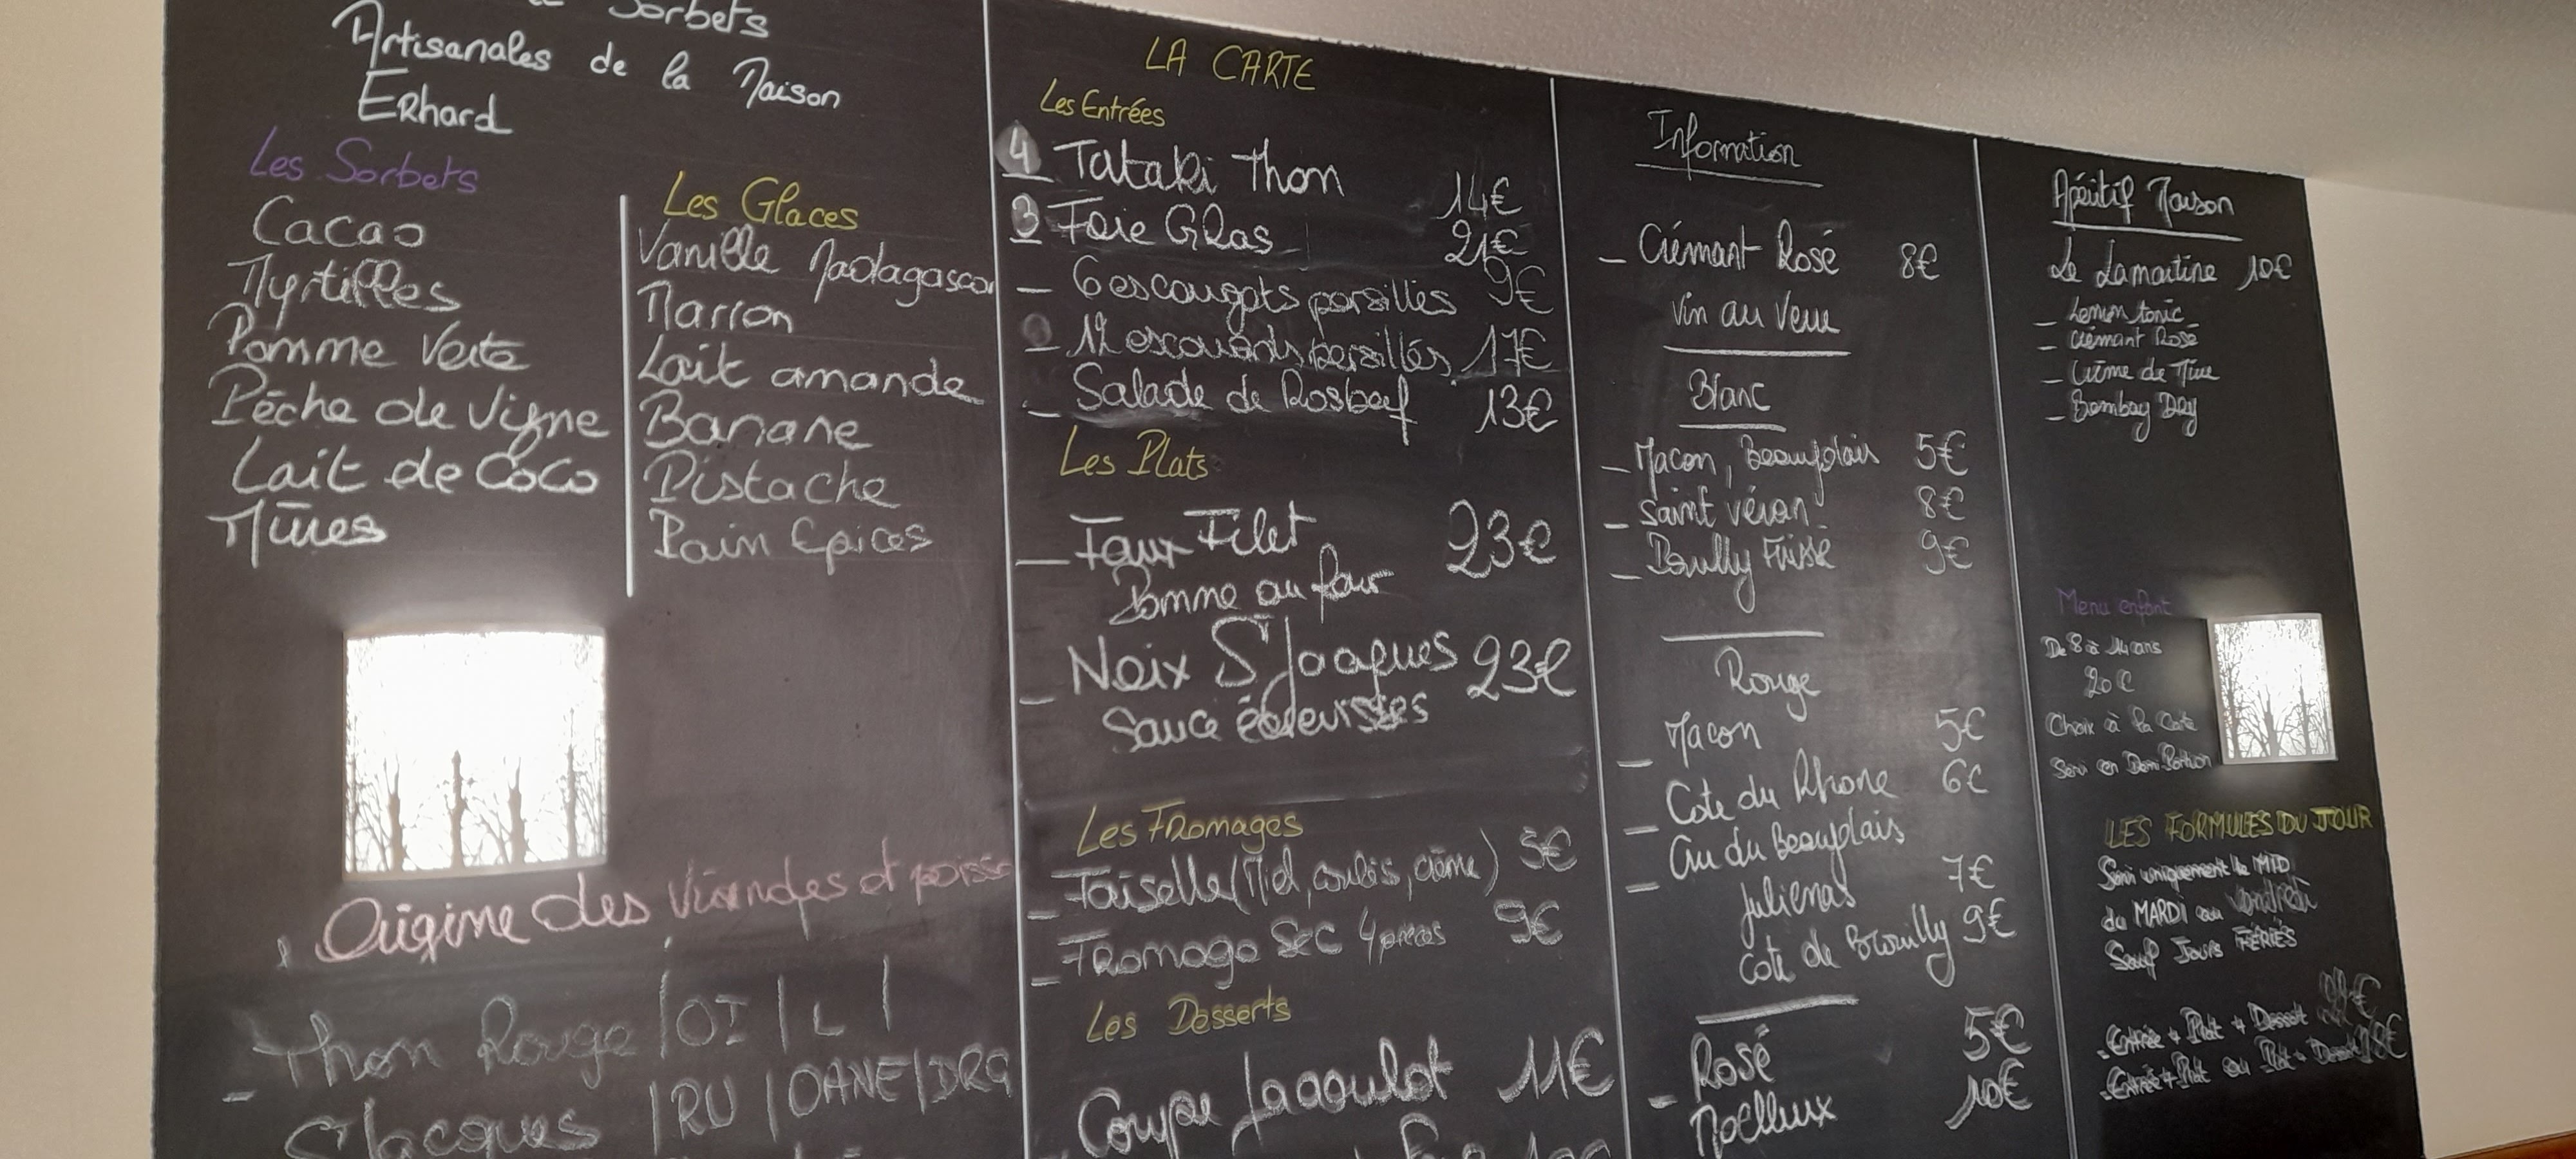 Sorbets
Artisanales de la Maison
Erhard
Les Sorbets
Cacao
Myrtilles
Pomme Verte
Pêche de Vigne
Lait de Coco
Mûres
Les Glaces
Vanille Madagascar
Marron
Lait amande
Banane
Pistache
Pain Epices
Origine des Viandes et poisso
- Thon Rouge | OI | L |
St Jacques | RU |
LA CARTE
Les Entrées
4 Tataki Thon 14€
3 Foie Gras 21€
- 6 escargots persillés 9€
- 12 escargots persillés 17€
- Salade de Rosbeef 13€
Les Plats
- Faux Filet 23€
Pomme au four
- Noix St Jacques 23€
Sauce écrevisses
Les Fromages
- Faiselle (Miel, coulis, crème) 5€
- Fromage Sec 4 pièces 9€
Les Desserts
Coupe Jacoulot 11€
Information
- Crémant Rosé 8€
Vin au Verre
Blanc
- Macon, Beaujolais 5€
- Saint véran 8€
- Pouilly Fuissé 9€
Rouge
- Macon 5€
- Cote du Rhone 6€
- Cru du Beaujolais
Julienas 7€
Cote de Brouilly 9€
- Rosé 5€
Moelleux 10€
Apéritif Maison
Le Lamartine 10€
- Lemon tonic
- Crémant Rosé
- Crème de Mûre
- Bombay Dry
Menu enfant
De 8 à 14 ans
20€
Choix à la Carte
Servi en Demi Portion
LES FORMULES DU JOUR
Servi uniquement le MIDI
du MARDI au Vendredi
Sauf Jours FÉRIÉS
- Entrée + Plat + Dessert
- Entrée + Plat ou Plat + Dessert 18€